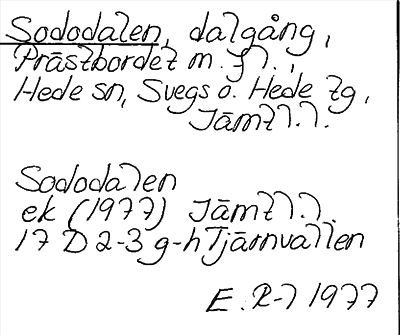 Sododalen, dalgång,
Prästbordet m. fl.,
Hede sn, Svegs o. Hede tg,
Jämtl.l.
Sododalen
ek (1977) Jämtl.l.
17 D 2-3 g-h Tjärnvallen
E. R-l 1977